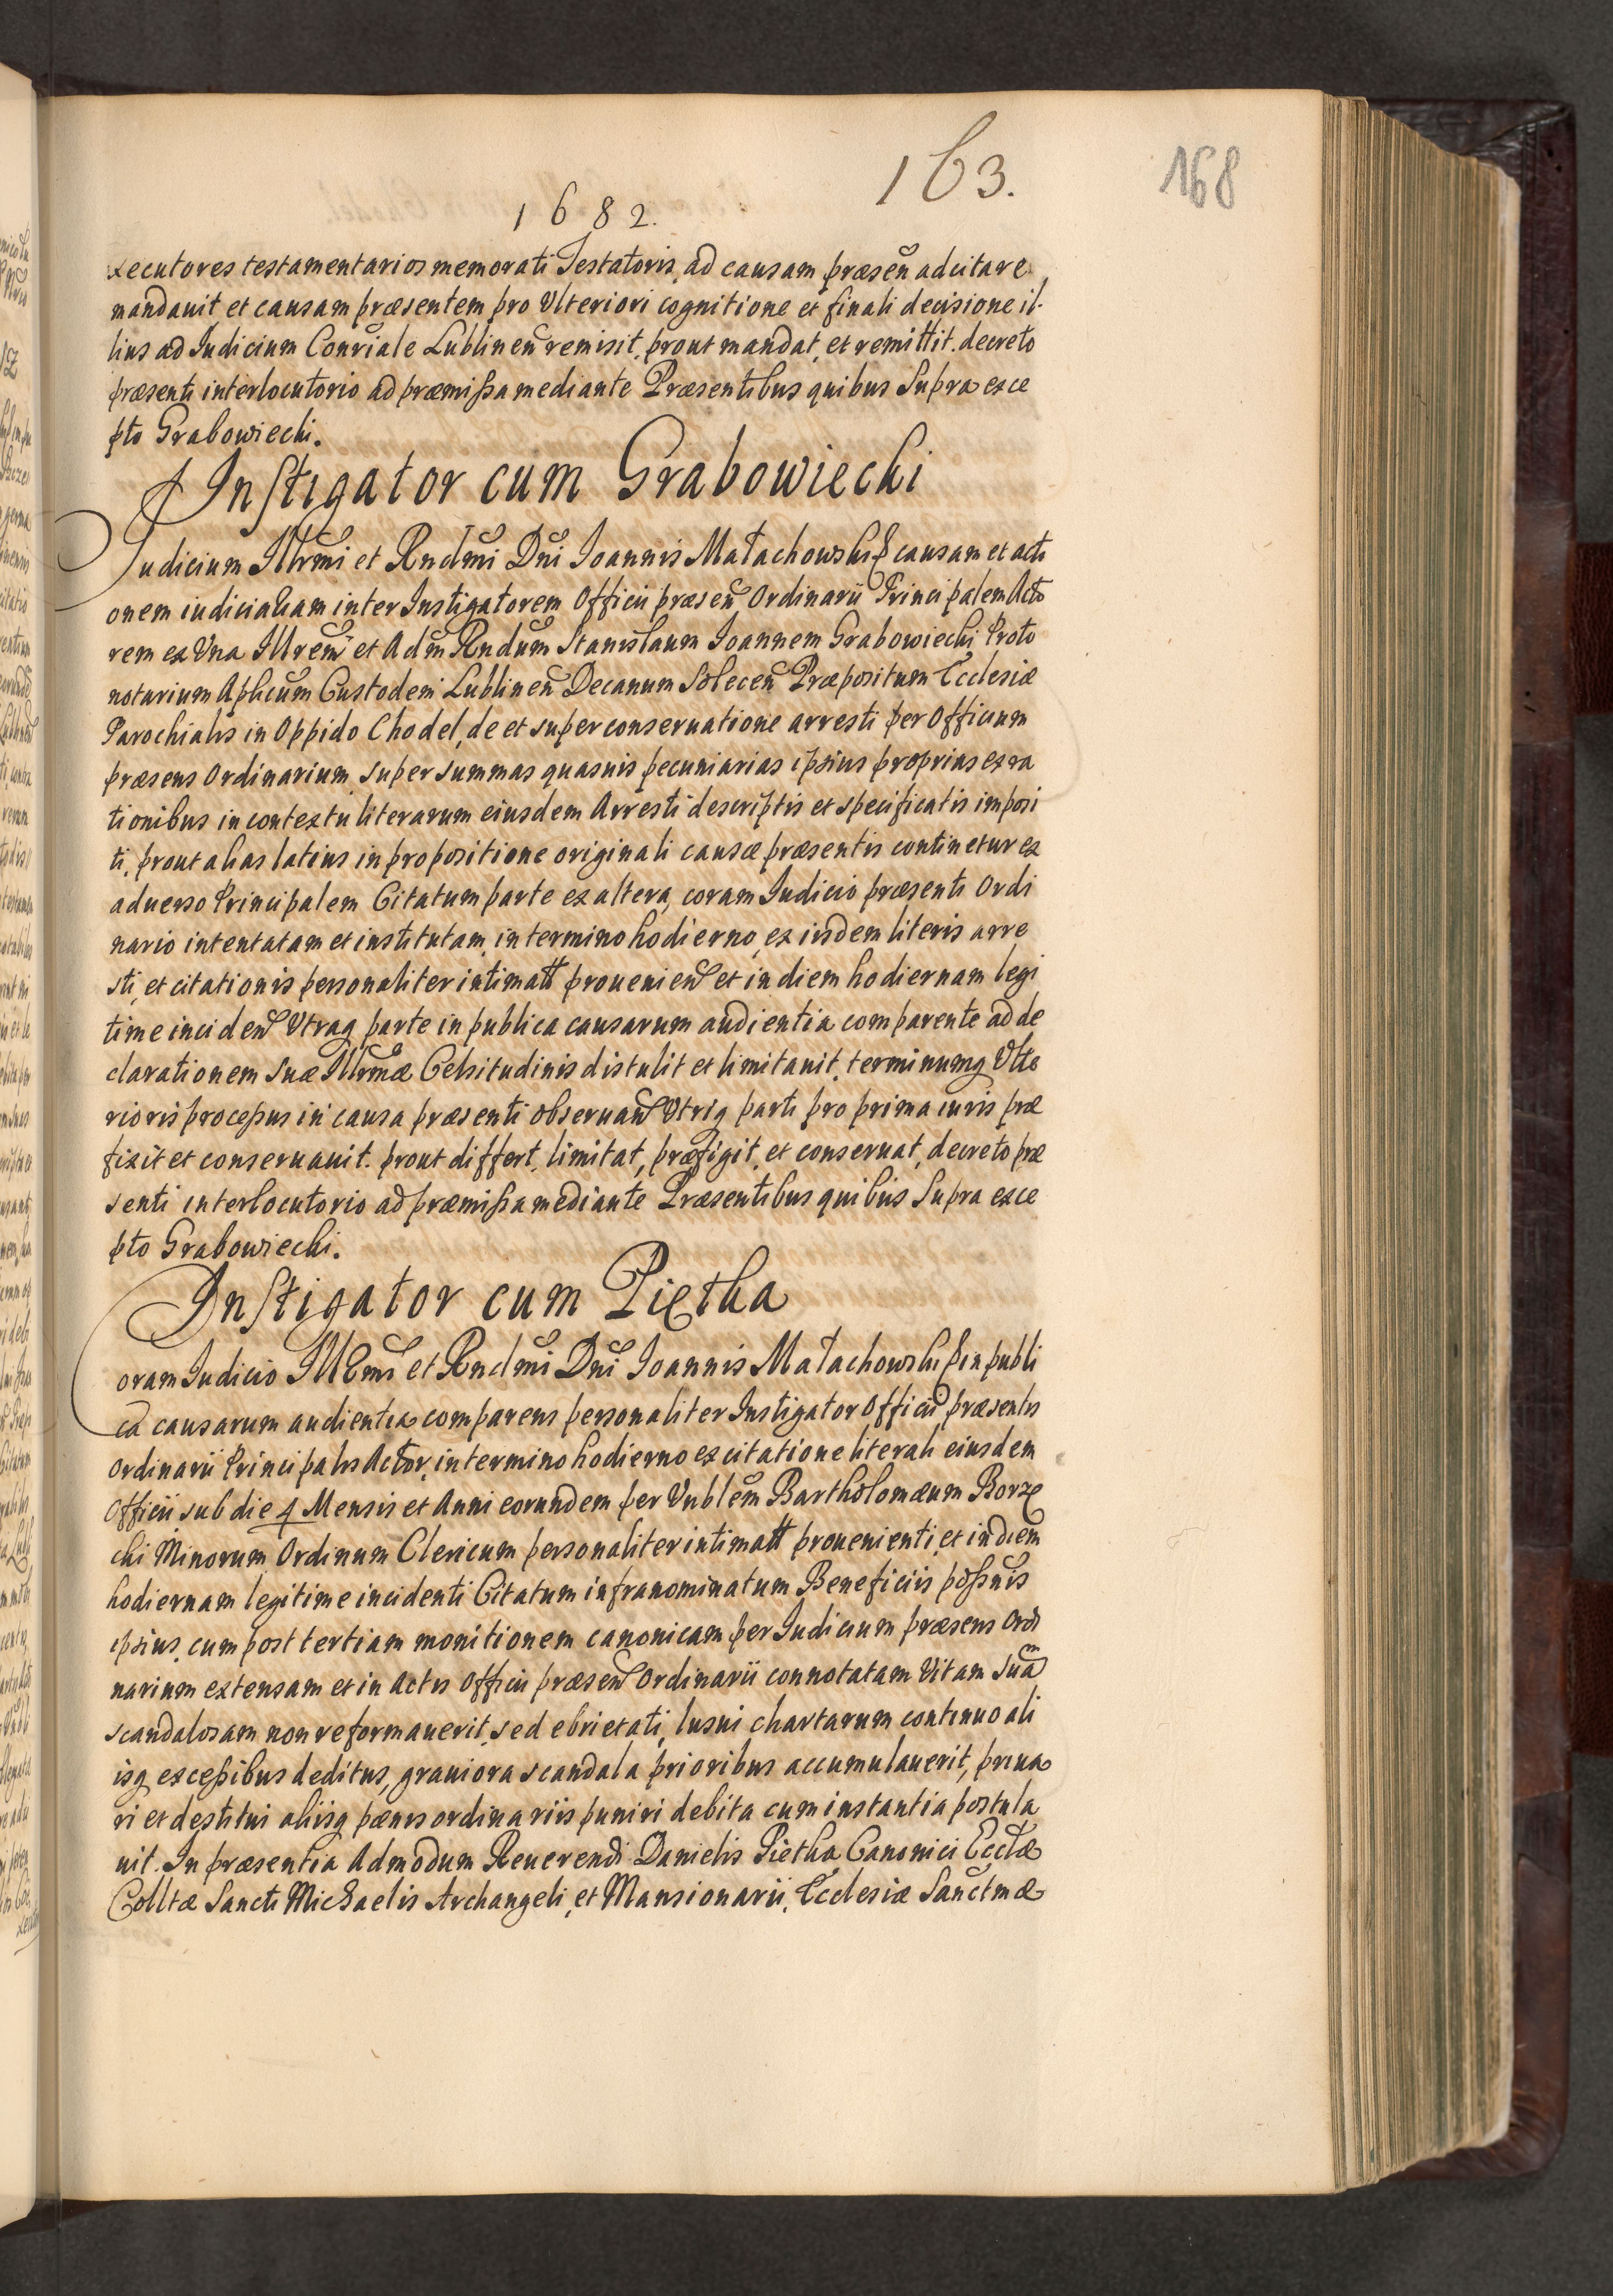 163.
168
1682.
xecutores testamentarios memorati Testatoris, ad causam præseñ adcitare
mandauit et causam præsentem pro Vlteriori cognitione et finali decisione il-
lius ad Iudicium Conriale Lublineñ remisit, prout mandat, et remittit. decreto
præsenti interlocutorio ad præmissa mediante Præsentibus quibus Supra exce
pto Grabowiecki.
Instigator cum Grabowiecki
Iudicium Illrmi et Rndmi Dni Ioannis Małachowski causam et acti
onem iudicialiam inter Instigatorem Officii præseñ Ordinarii Principalem Acto
rem ex Vna Illrem et Adm Rndum Stanislaum Ioannem Grabowiecki Proto
notarium Aplicum Custodem Lublineñ Decanum Soleceñ Præpositum Ecclesiæ
Parochialis in Oppido Chodel, de et super conseruatione arresti per Officium
præsens Ordinarium super summas quasuis pecuniarias ipsius proprias ex ra
tionibus in contextu literarum eiusdem Arresti descriptis et specificatis imposi
ti, prout alias latius in propositione originali causæ præsentis continetur ex
aduerso Principalem Citatum parte ex altera, coram Iudicio præsenti Ordi
nario intentatam et institutam, in termino hodierno, ex iisdem literis arre
sti, et citationis personaliter intimatt prouenieñ et in diem hodiernam legi
time incideñ Vtraq parte in publica causarum audientia comparente ad de
clarationem Suæ Illrmæ Celsitudinis distulit et limitauit, terminumq Vlte
rioris processus in causa præsenti obseruañ Vtriq parti pro prima iuris præ
fixit et conseruauit. prout differt, limitat, præfigit, et conseruat, decreto præ
senti interlocutorio ad præmissa mediante Præsentibus quibus Supra exce
pto Grabowiecki.
Instigator cum Piętha
Coram Iudicio Illrmi et Rndmi Dni Ioannis Małachowski in publi
ca causarum audientia comparens personaliter Instigator Officii præsentis
Ordinarii Principalis Actor, in termino hodierno ex citatione literali eiusdem
Officii sub die 4 Mensis et Anni eorundem per Vnblem Bartholomæum Borzę
cki Minorum Ordinum Clericum personaliter intimatt prouenienti, et in diem
hodiernam legitime incidenti Citatum infranominatum Beneficiis possuis
ipsius, cum post tertiam monitionem canonicam per Iudicium præsens Ordi
narium extensam et in Actis Officii præseñ Ordinarii connotatam Vitam suam
scandalosam non reformauerit, sed ebrietati, lusui chartarum continuo ali
isq excessibus deditus, grauiora scandala prioribus accumulauerit, priua
ri et destitui aliisq pænis ordinariis puniri debita cum instantia postula
uit. In præsentia Admodum Reuerendi Danielis Piętha Canonici Ecclæ
Colltæ Sancti Michaelis Archangeli, et Mansionarii, Ecclesiæ Sanctmæ